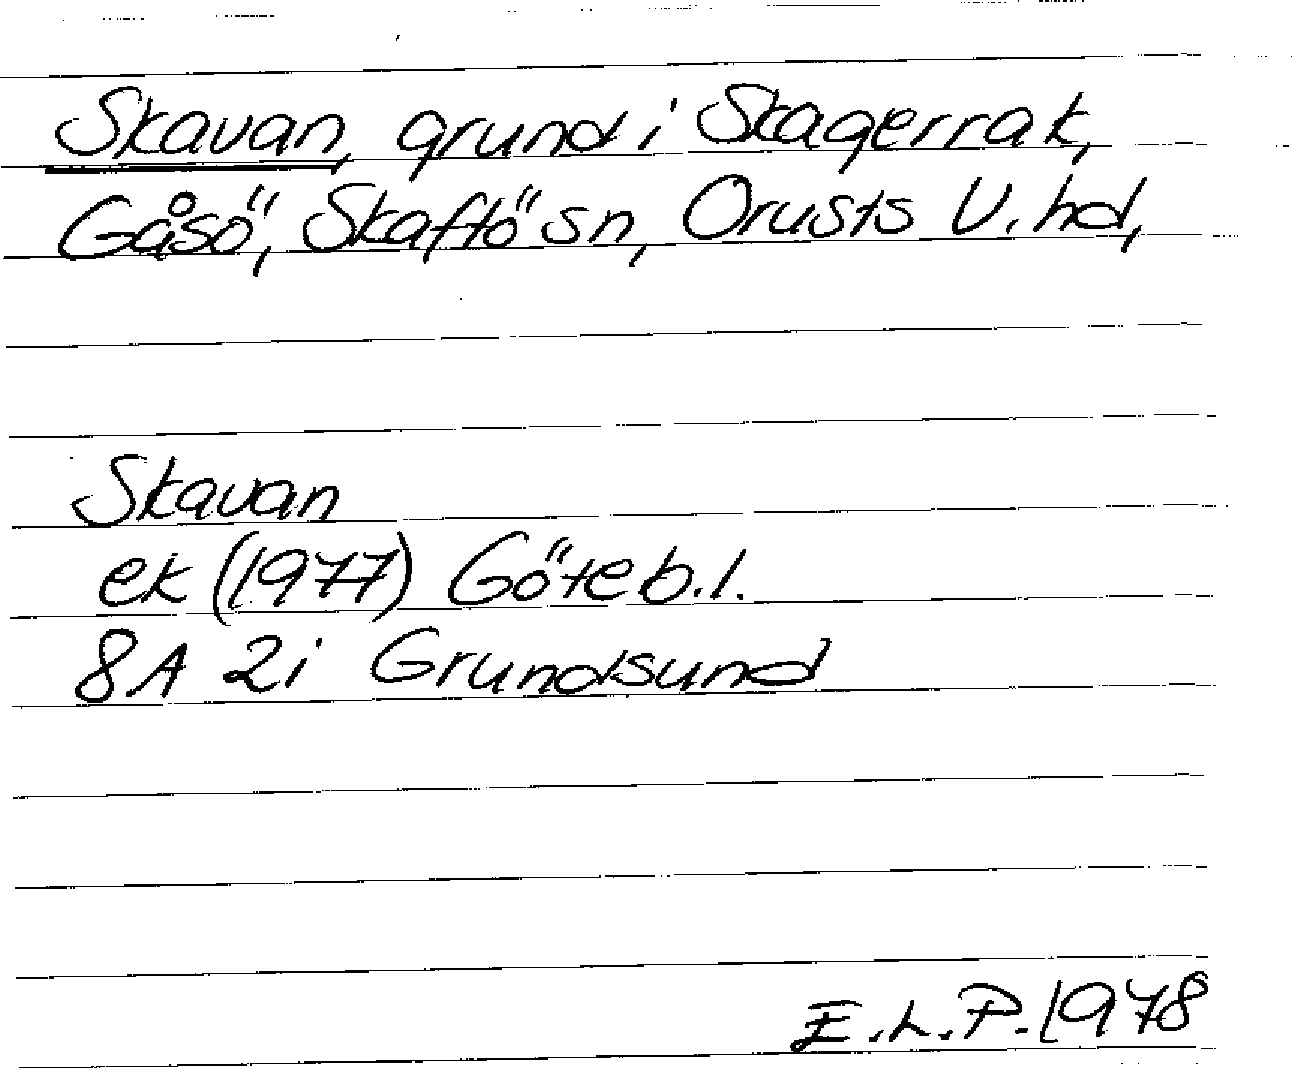 Skavan, grund i Skagerrak,
Gåsö, Skaftö sn, Orusts V. hd,
Skavan
ek (1977) Göteb.l.
8A 2i Grundsund
E.L.P. 1978